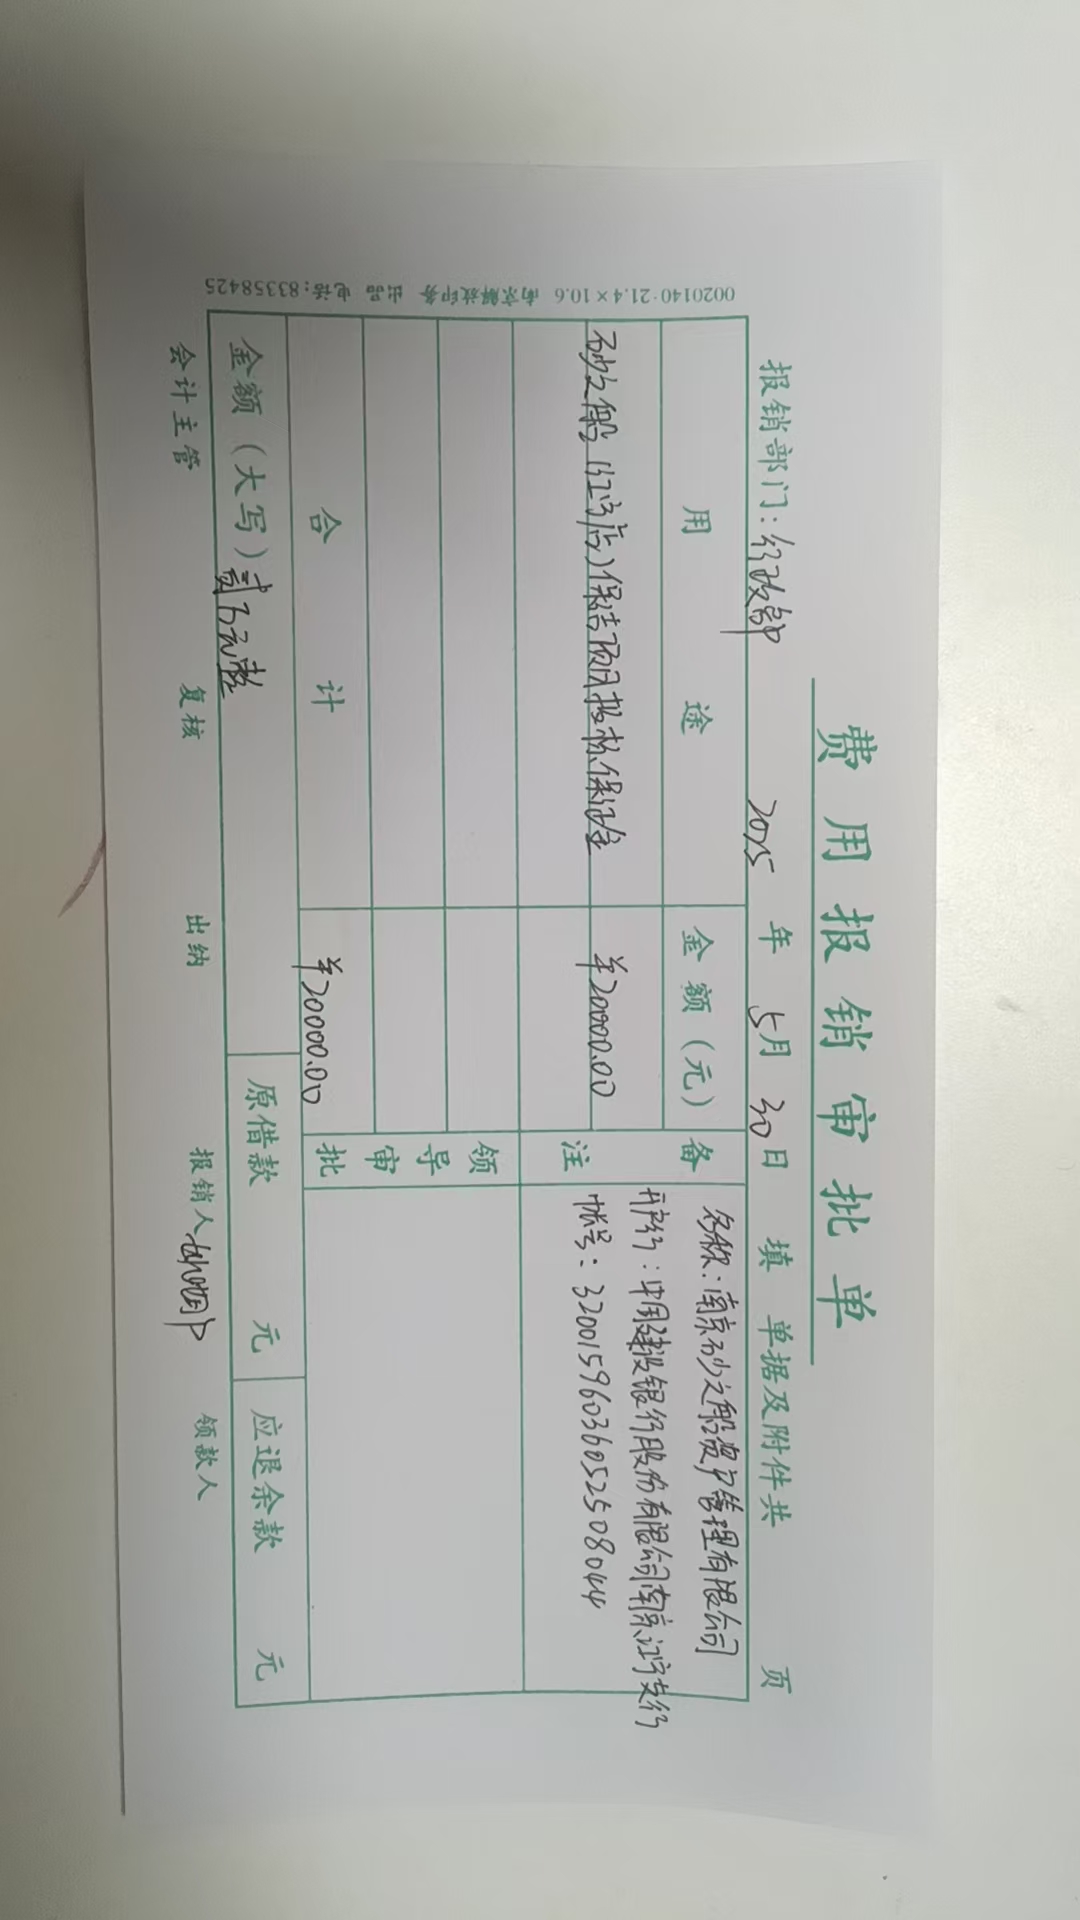 费用报销审批单
报销部门：行政部 2025年5月30日填 单据及附件共 页
用途 金额（元） 备注
砂之船（江宁店）保洁项目投标保证金 ¥20000.00
名称：南京砂之船资产管理有限公司
开户行：中国建设银行股份有限公司南京江宁支行
帐号：32001596036052508044
合计 ¥20000.00
领导审批
金额（大写）贰万元整 原借款 元 应退余款 元
会计主管 复核 出纳 报销人 领款人
0020140·21.4×10.6 南京解放印务 出品 电话:83358425